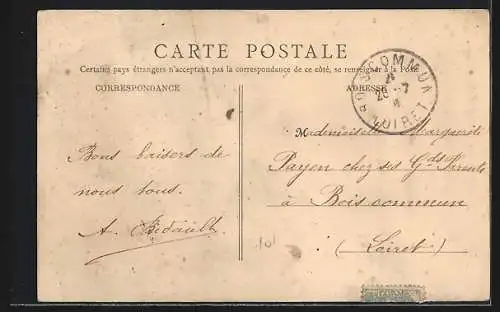 CARTE POSTALE
Certains pays étrangers n'acceptant pas la correspondance de ce côté, se renseigner à la Poste
CORRESPONDANCE
ADRESSE
BOISCOMMUN
26 -7
LOIRET
Bons baisers de
nous tous.
A. Bidault
Mademoiselle Marguerite
Payen chez ses Gds Parents
à Boiscommun
(Loiret)